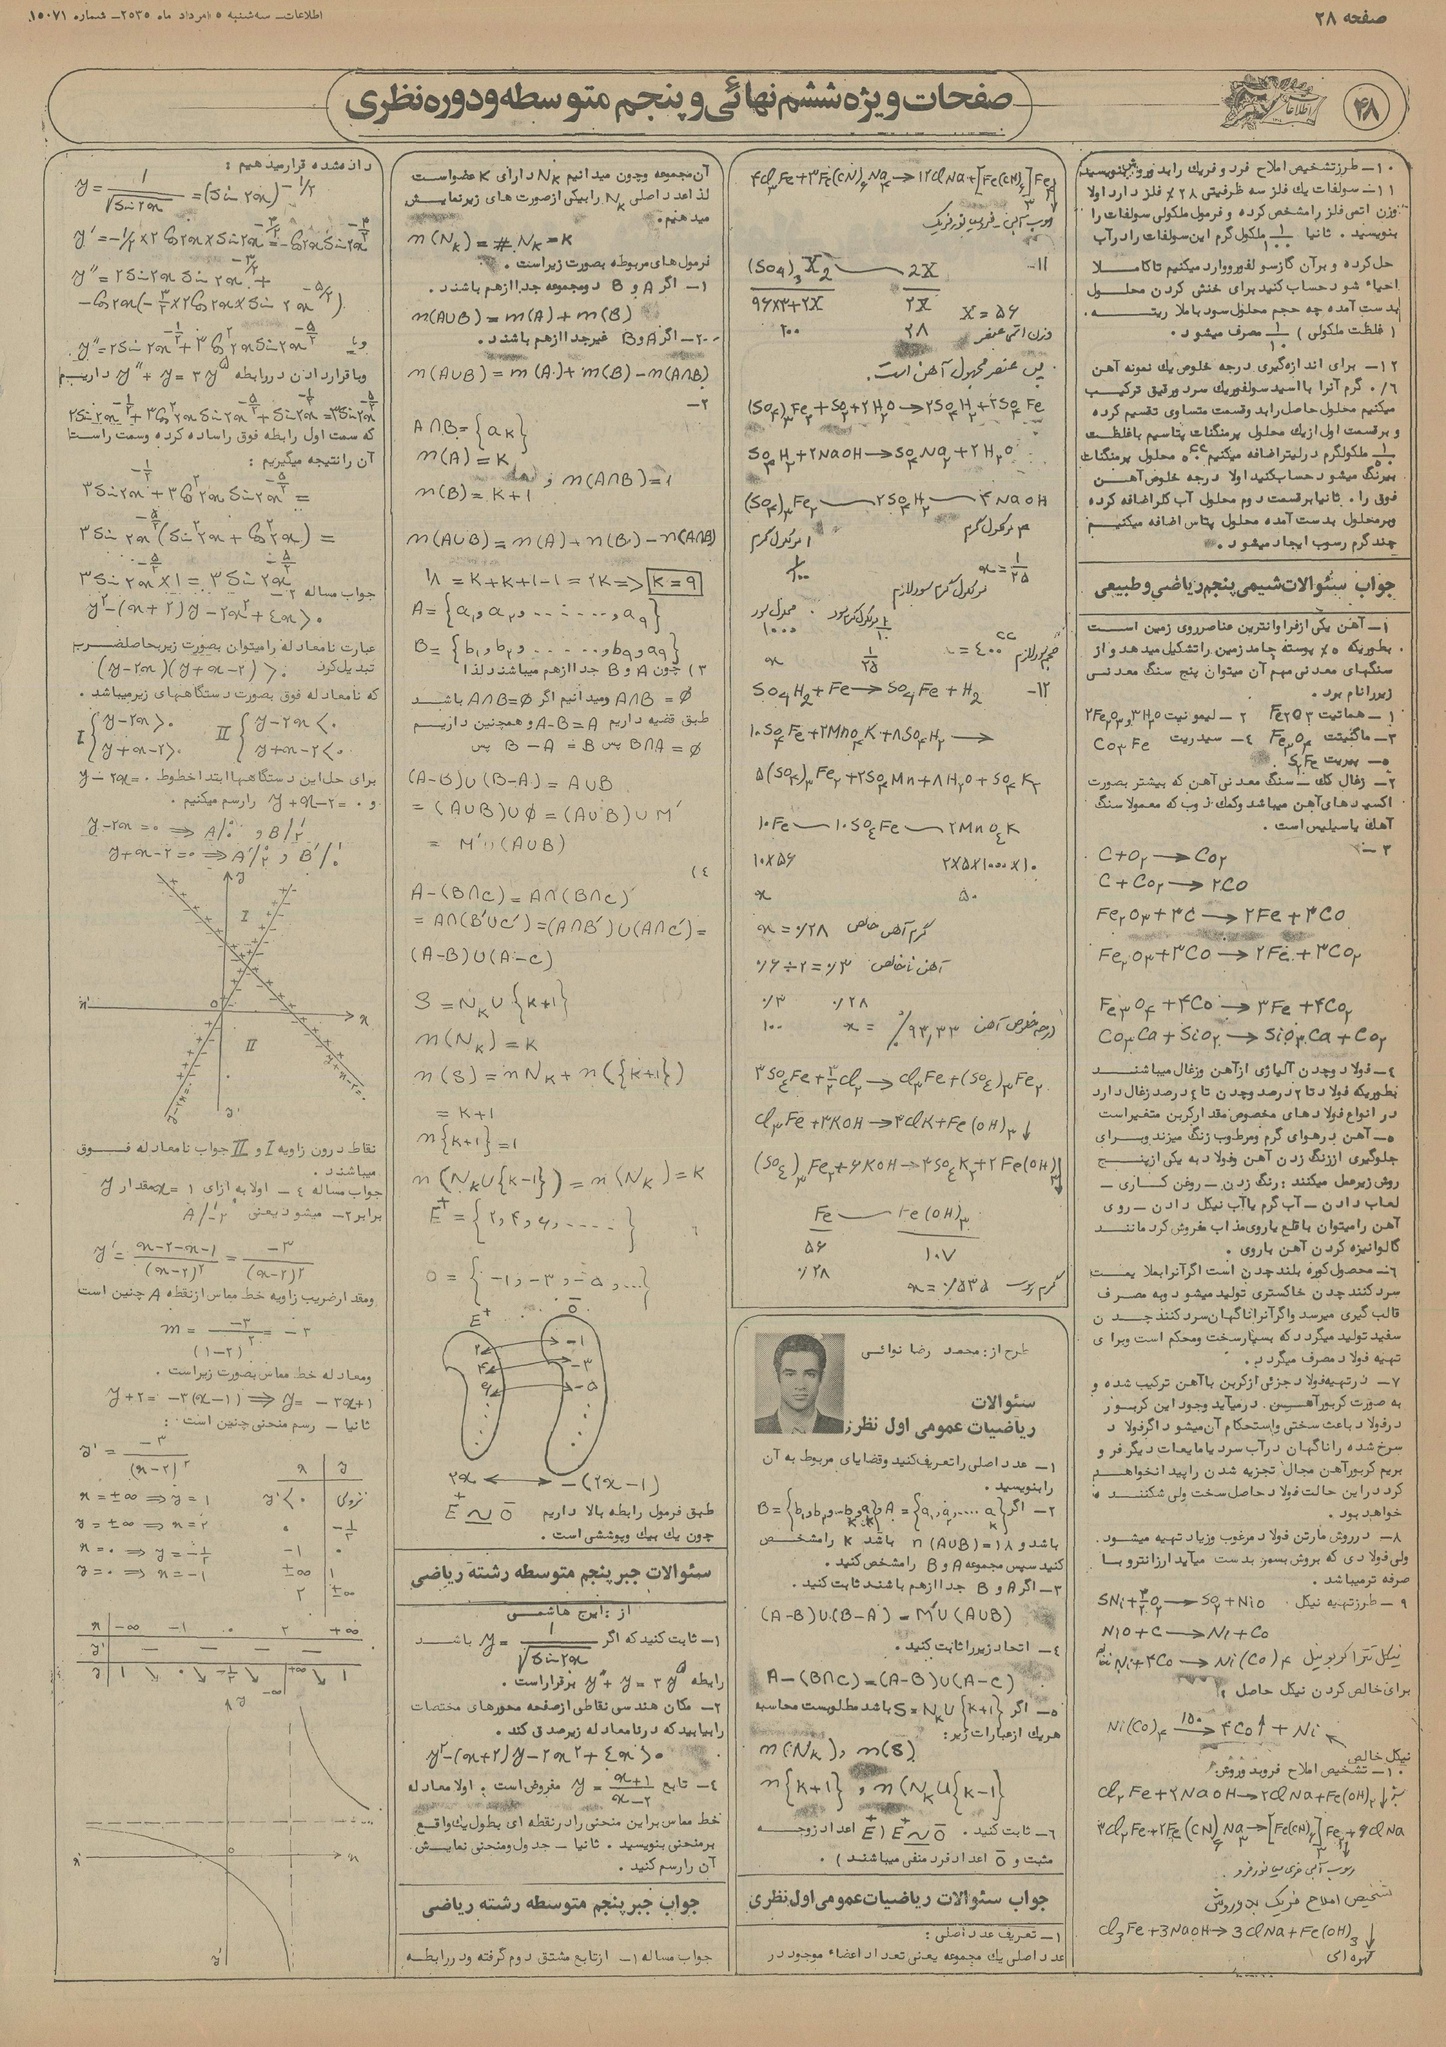 صفحه ۲۸
اطلاعات ــ سه‌شنبه ۵ امرداد ماه ۲۵۳۵ ــ شماره ۱۵۰۷۱
۴۸
صفحات ویژه ششم نهائی و پنجم متوسطه و دوره نظری
۱۰ــ طرز تشخیص املاح فرو و فریک را بدو روش بنویسید
۱۱ــ سولفات یک فلز سه ظرفیتی ۲۸٪ فلز دارد اولا
وزن اتمی فلز را مشخص کرده و فرمول ملکولی سولفات را
بنویسید . ثانیا ۱/۱۰۰ ملکول گرم این سولفات را در آب
حل کرده و بر آن گاز سولفورو وارد میکنیم تا کاملا
احیاء شود حساب کنید برای خنثی کردن محلول
بدست آمده چه حجم محلول سود با ملاریته
( غلظت ملکولی ) ۱/۱۰ مصرف میشود .
۱۲ــ برای اندازه‌گیری درجه خلوص یک نمونه آهن
۰/۶ گرم آنرا با اسید سولفوریک سرد و رقیق ترکیب
میکنیم محلول حاصل را بدو قسمت متساوی تقسیم کرده
و بر قسمت اول از یک محلول پرمنگنات پتاسیم با غلظت
ملکولگرم در لیتر اضافه میکنیم محلول پرمنگنات
بیرنگ میشود حساب کنید اولا درجه خلوص آهن
فوق را . ثانیا بر قسمت دوم محلول آب کلر اضافه کرده
و بر محلول بدست آمده محلول پتاس اضافه میکنیم
چند گرم رسوب ایجاد میشود .
جواب سئوالات شیمی پنجم ریاضی و طبیعی
۱ــ آهن یکی از فراوانترین عناصر روی زمین است
بطوریکه ۵٪ پوسته جامد زمین را تشکیل میدهد و از
سنگهای معدنی مهم آن میتوان پنج سنگ معدنی
زیر را نام برد .
۱ــ هماتیت Fe₂O₃ ۲ ــ لیمونیت 2Fe₂O₃,3H₂O
۳ــ ماگنیتت Fe₃O₄ ۴ــ سیدریت CO₃Fe
۵ــ پیریت S₂Fe
۲ــ زغال کک ــ سنگ معدنی آهن که بیشتر بصورت
اکسیدهای آهن میباشد و کمک ذوب که معمولا سنگ
آهک یا سیلیس است .
۳ــ
C+O₂ → CO₂
C+CO₂ → 2CO
Fe₂O₃+3C → 2Fe+3CO
Fe₂O₃+3CO → 2Fe+3CO₂
Fe₃O₄+4CO → 3Fe+4CO₂
CO₃Ca+SiO₂ → SiO₃Ca+CO₂
۴ــ فولاد و چدن آلیاژی از آهن و زغال میباشند
بطوریکه فولاد تا ۲ درصد و چدن تا ٤ درصد زغال دارد
در انواع فولادهای مخصوص مقدار کربن متغیر است
۵ــ آهن در هوای گرم و مرطوب زنگ میزند و برای
جلوگیری از زنگ زدن آهن و فولاد به یکی از پنج
روش زیر عمل میکنند : رنگ زدن ــ روغن کاری ــ
لعاب دادن ــ آب گرم یا آب نیکل دادن ــ روی
آهن را میتوان با قلع یا روی مذاب مفروش کرد مانند
گالوانیزه کردن آهن با روی .
۶ــ محصول کوره بلند چدن است اگر آنرا بملایمت
سرد کنند چدن خاکستری تولید میشود و به مصرف
قالب گیری میرسد و اگر آنرا ناگهان سرد کنند چدن
سفید تولید میگردد که بسیار سخت و محکم است و برای
تهیه فولاد مصرف میگردد .
۷ــ در تهیه فولاد جزئی از کربن با آهن ترکیب شده و
به صورت کربور آهن میآید وجود این کربور
در فولاد باعث سختی و استحکام آن میشود اگر فولاد
سرخ شده را ناگهان در آب سرد یا مایعات دیگر فرو
بریم کربور آهن مجال تجزیه شدن را پیدا نخواهد
کرد در این حالت فولاد حاصل سخت ولی شکننده
خواهد بود .
۸ــ در روش مارتن فولاد مرغوب و زیاد تهیه میشود
ولی فولادی که بروش بسمر بدست میآید ارزانتر و با
صرفه تر میباشد .
۹ــ طرز تهیه نیکل SNi+3/2O₂ → SO₂+NiO
NiO+C → Ni+CO
نیکل تترا کربونیل Ni+4CO → Ni(CO)₄
برای خالص کردن نیکل حاصل :
Ni(CO)₄ →150 4CO↑ + Ni
نیکل خالص
۱۰ــ تشخیص املاح فرو بدو روش :
Cl₂Fe+2NaOH → 2ClNa+Fe(OH)₂↓ سبز
3Cl₂Fe+2Fe(CN)₆Na₃ → [Fe(CN)₆]₂Fe₃+6ClNa
تشخیص املاح فریک بدو روش
Cl₃Fe+3NaOH → 3ClNa+Fe(OH)₃↓
قهوه‌ای
4Cl₃Fe+3Fe(CN)₆Na₄ → 12ClNa+[Fe(CN)₆]₃Fe₄↓
۱۱ــ
(SO₄)₃X₂ —— 2X
۹۶×۳+۲X   ۲X   X=۵۶
۲۰۰   ۲۸   وزن اتمی عنصر
پس عنصر مجهول آهن است .
(SO₄)₃Fe₂+SO₂+2H₂O → 2SO₄H₂+2SO₄Fe
SO₄H₂+2NaOH → SO₄Na₂+2H₂O
(SO₄)₃Fe₂ —— 2SO₄H₂ —— 4NaOH
۱ مولکول گرم   ۴ مولکول گرم
۱/۱۰۰   x=۱/۲۵
مولکول گرم سود لازم
۱/۱۰ مولکول گرم سود   محلول سود ۱۰۰۰
۱/۲۵   x   x = ۴۰۰ cc حجم سود لازم
۱۲ــ SO₄H₂+Fe → SO₄Fe+H₂
10SO₄Fe+2MnO₄K+8SO₄H₂ →
5(SO₄)₃Fe₂+2SO₄Mn+8H₂O+SO₄K₂
10Fe —— 10SO₄Fe —— 2MnO₄K
۱۰×۵۶   ۲×۵×۱۰۰۰×۱۰
x   ۵۰
گرم آهن خالص x = ۰/۲۸
آهن ناخالص ۰/۶÷۲=۰/۳
۰/۳   ۰/۲۸
۱۰۰   x = ٪۹۳,۳۳ درجه خلوص آهن
3SO₄Fe+3/2Cl₂ → Cl₃Fe+(SO₄)₃Fe₂
Cl₃Fe+3KOH → 3ClK+Fe(OH)₃↓
(SO₄)₃Fe₂+6KOH → 3SO₄K₂+2Fe(OH)₃↓
Fe —— Fe(OH)₃
۵۶   ۱۰۷
۰/۲۸   x = ۰/۵۳۵ گرم رسوب
طرح از : محمد رضا نوائی
سئوالات
ریاضیات عمومی اول نظری
۱ــ عدد اصلی را تعریف کنید و قضایای مربوط به آن
را بنویسید .
۲ــ اگر A={a₁,a₂,....aₖ} و B={b₁,b₂,...bₖ,aₖ}
باشد و n(A∪B)=۱۸ باشد K را مشخص
کنید سپس مجموعه A و B را مشخص کنید .
۳ــ اگر A و B جدا از هم باشند ثابت کنید .
(A-B)∪(B-A) = M'∪(A∪B)
٤ــ اتحاد زیر را ثابت کنید .
A-(B∩C)=(A-B)∪(A-C)
۵ــ اگر S=Nₖ∪{k+1} باشد مطلوبست محاسبه
هر یک از عبارات زیر :
n(Nₖ), n(S)
n{k+1} , n(Nₖ∪{k-1})
۶ــ ثابت کنید . E⁺ ~ O⁻ ( E⁺ اعداد زوج
مثبت و O⁻ اعداد فرد منفی میباشند ) .
جواب سئوالات ریاضیات عمومی اول نظری
۱ــ تعریف عدد اصلی :
عدد اصلی یک مجموعه یعنی تعداد اعضاء موجود در
آن مجموعه و چون میدانیم Nₖ دارای K عضو است
لذا عدد اصلی Nₖ را بیکی از صورت های زیر نمایش
میدهیم .
n(Nₖ)=#Nₖ=K
فرمول‌های مربوطه بصورت زیر است .
۱ــ اگر A و B دو مجموعه جدا از هم باشند .
n(A∪B)=n(A)+n(B)
۲ــ اگر A و B غیر جدا از هم باشند .
n(A∪B)=n(A)+n(B)-n(A∩B)
۲ــ
A∩B={aₖ}
n(A)=K
n(B)=K+1 , n(A∩B)=1
n(A∪B)=n(A)+n(B)-n(A∩B)
۱۸=K+K+1-1=2K ⇒ K=9
A={a₁,a₂,......,a₉}
B={b₁,b₂,......,b₉,a₉}
۳) چون A و B جدا از هم میباشند لذا
A∩B=∅ و میدانیم اگر A∩B=∅ باشد
طبق قضیه داریم A-B=A و همچنین داریم
B∩A=∅ پس B-A=B پس
(A-B)∪(B-A)=A∪B
=(A∪B)∪∅=(A∪B)∪M'
= M'∪(A∪B)
٤)
A-(B∩C)=A∩(B∩C)'
=A∩(B'∪C')=(A∩B')∪(A∩C')=
(A-B)∪(A-C)
S=Nₖ∪{k+1}
n(Nₖ)=K
n(S)=nNₖ+n({k+1})
=K+1
n{k+1}=1
n(Nₖ∪{k-1})=n(Nₖ)=K
E⁺={۲,۴,۶,.....}
O⁻={-۱,-۳,-۵,...}
E⁺ O⁻
۲ -۱
۴ -۳
۶ -۵
2x ↔ -(2x-1)
طبق فرمول رابطه بالا داریم E⁺ ~ O⁻
چون یک بیک و پوششی است .
سئوالات جبر پنجم متوسطه رشته ریاضی
از : ایرج هاشمی
۱ــ ثابت کنید که اگر y=1/√sin2x باشد
رابطه y''+y=3y⁵ برقرار است .
۲ــ مکان هندسی نقاطی از صفحه محورهای مختصات
را بیابید که در نامعادله زیر صدق کند .
y²-(x+2)y-2x²+4x>0
٤ــ تابع y=(x+1)/(x-2) مفروض است . اولا معادله
خط مماس بر این منحنی را در نقطه ای بطول یک واقع
بر منحنی بنویسید . ثانیا ــ جدول و منحنی نمایش
آن را رسم کنید .
جواب جبر پنجم متوسطه رشته ریاضی
جواب مساله ۱ــ از تابع مشتق دوم گرفته و در رابطه
داده شده قرار میدهیم :
y=1/√sin2x=(sin2x)^-1/2
y'=-1/2×2Cos2x×sin2x^-3/2=-Cos2x sin2x^-3/2
y''=2sin2x sin2x^-3/2+
-Cos2x(-3/2×2Cos2x×sin2x^-5/2)
ویا y''=2sin2x^-1/2+3Cos²2x sin2x^-5/2
و با قرار دادن در رابطه y''+y=3y⁵ داریم
2sin2x^-1/2+3Cos²2x sin2x^-5/2+sin2x^-1/2=3sin2x^-5/2
که سمت اول رابطه فوق را ساده کرده و سمت راست
آن را نتیجه میگیریم :
3sin2x^-1/2+3Cos²2x sin2x^-5/2=
3sin2x^-5/2(sin²2x+Cos²2x)=
3sin2x^-5/2×1=3sin2x^-5/2
جواب مساله ۲ــ
y²-(x+2)y-2x²+4x>0
عبارت نامعادله را میتوان بصورت زیر بحاصلضرب
تبدیل کرد (y-2x)(y+x-2)>0
که نامعادله فوق بصورت دستگاههای زیر میباشد .
I {y-2x>0 II {y-2x<0
y+x-2>0 y+x-2<0
برای حل این دستگاهها ابتدا خطوط y-2x=0
و y+x-2=0 را رسم میکنیم .
y-2x=0 ⇒ A|0 0 , B|1 2
y+x-2=0 ⇒ A'|0 2 , B'|1 1
y
I
x' O x
II
y-2x=0 y' y+x-2=0
نقاط درون زاویه I و II جواب نامعادله فوق
میباشند .
جواب مساله ٤ــ اولا به ازای x=1 مقدار y
برابر ۲- میشود یعنی A|1 -2
y'=(x-2-x-1)/(x-2)²=-3/(x-2)²
و مقدار ضریب زاویه خط مماس از نقطه A چنین است
m=-3/(1-2)²=-3
و معادله خط مماس بصورت زیر است .
y+2=-3(x-1) ⇒ y=-3x+1
ثانیا ــ رسم منحنی چنین است :
y'=-3/(x-2)²
y'<0 نزولی
x=±∞ ⇒ y=1
y=±∞ ⇒ x=2
x=0 ⇒ y=-1/2
y=0 ⇒ x=-1
x y
0 -1/2
-1 0
±∞ 1
2 ±∞
x -∞ -1 0 2 +∞
y' — — — —
y 1 ↘ 0 ↘ -1/2 ↘ -∞ +∞ ↘ 1
y
x' o x
y'